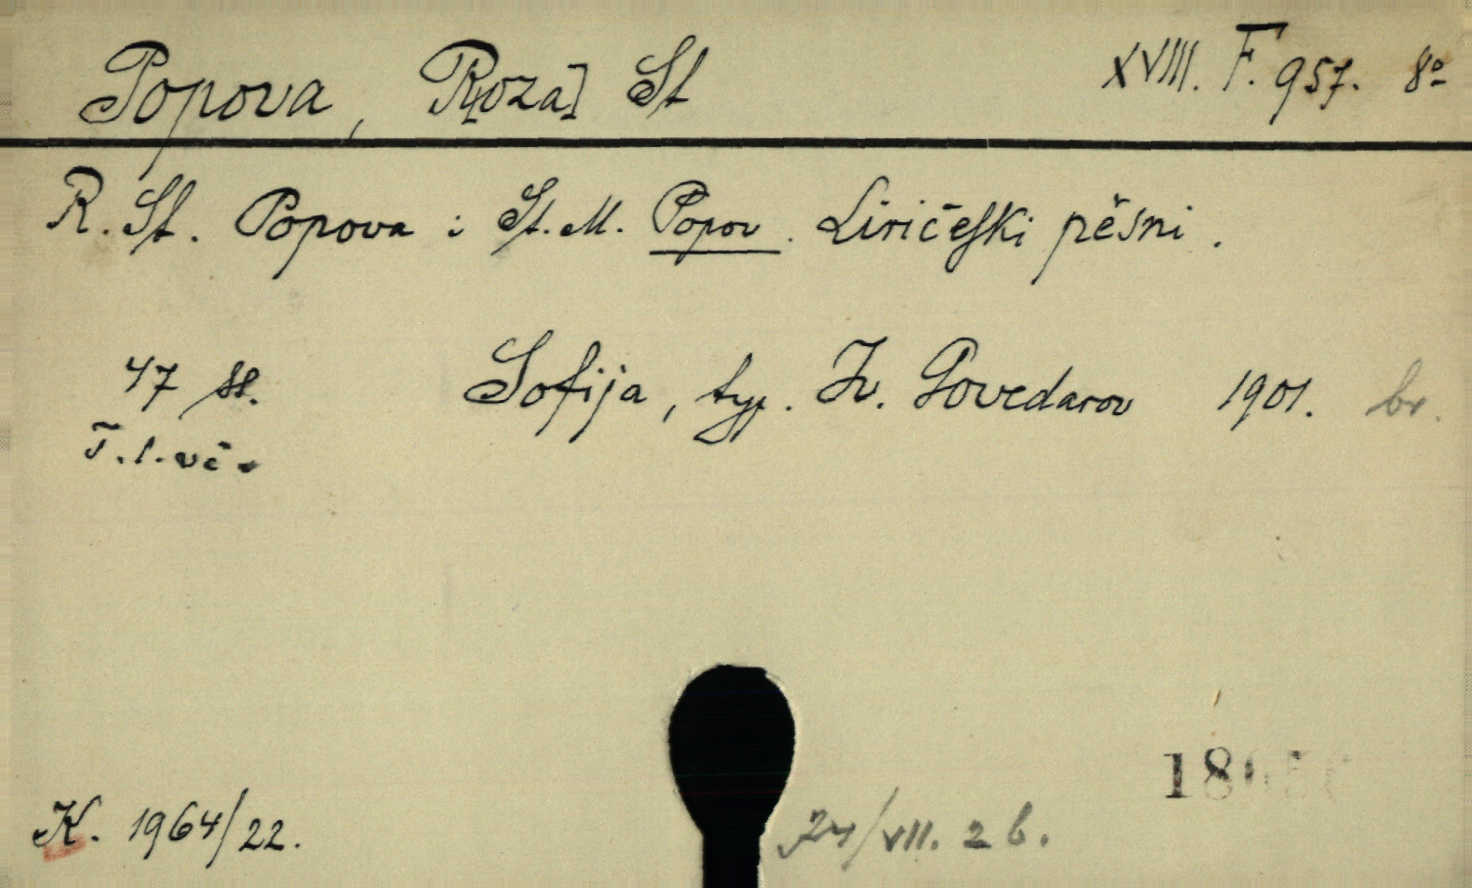 Popova, R[oza] St XVIII. F. 957. 8º
R. St. Popova i St. M. Popov. Liričeski pěsni.
47 st. Sofija, typ. Iv. Govedarov 1901. br.
T. l. vč.
K. 1964/22. 74/VII. 2 b.